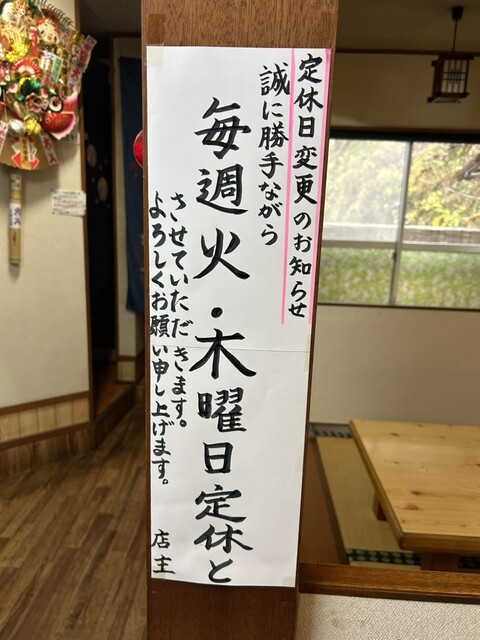 定休日変更のお知らせ
誠に勝手ながら
毎週火・木曜日定休と
させていただきます。
よろしくお願い申し上げます。
店主